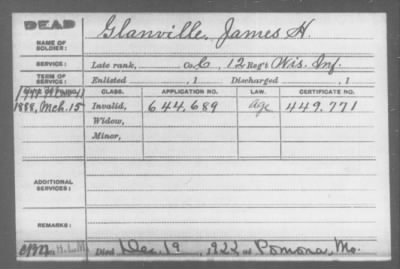 DEAD
NAME OF SOLDIER: Glanville, James H.
SERVICE: Late rank, Co. C, 12 Reg't Wis. Inf.
TERM OF SERVICE: Enlisted , 1 Discharged , 1
CLASS. APPLICATION NO. LAW. CERTIFICATE NO.
1888, Mch. 15 Invalid, 644,689 Age 449,771
Widow,
Minor,
ADDITIONAL SERVICES:
REMARKS:
H.L.M. Died Dec. 19, 1922 at Pomona, Mo.